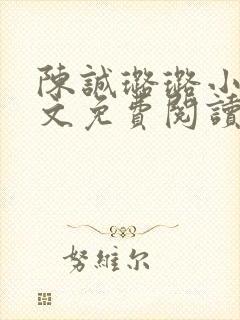 陳誠璐璐小
文免費閱讀
努維尔